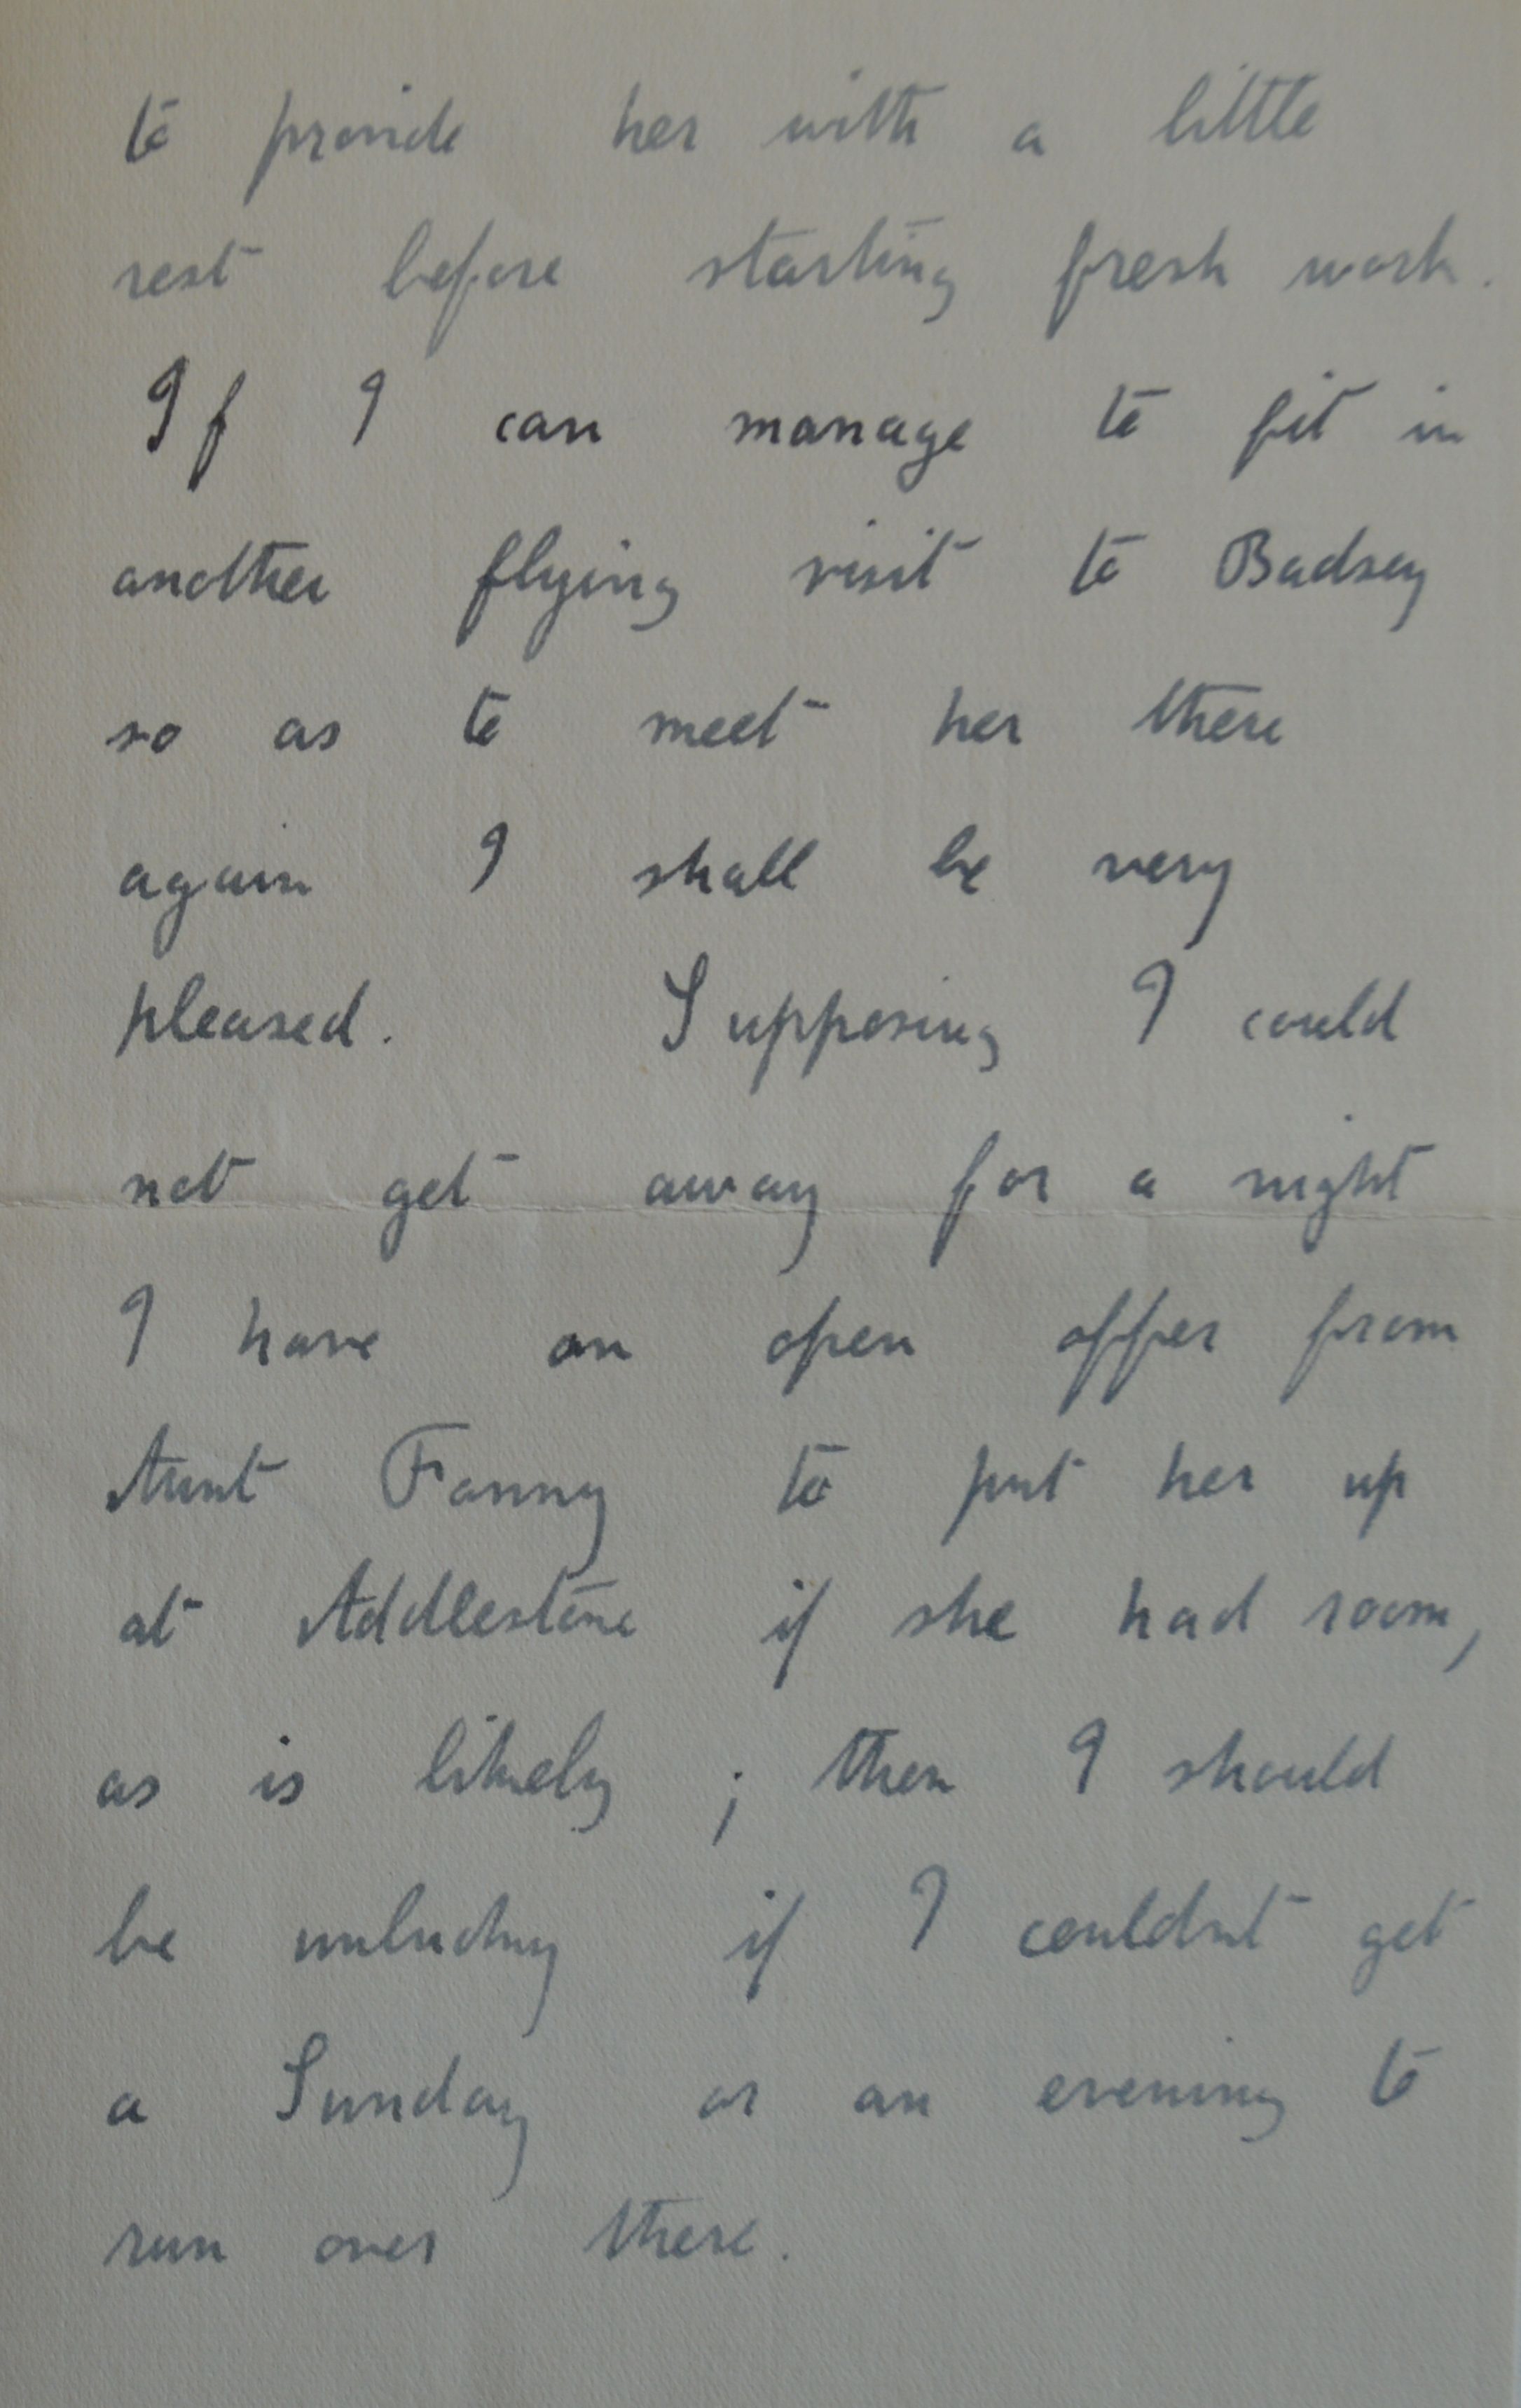 to provide her with a little
rest before starting fresh work.
If I can manage to fit in
another flying visit to Badsey
so as to meet her there
again I shall be very
pleased. Supposing I could
not get away for a night
I have an open offer from
Aunt Fanny to put her up
at Addlestone if she had room,
as is likely ; then I should
be unlucky if I couldnt get
a Sunday or an evening to
run over there.